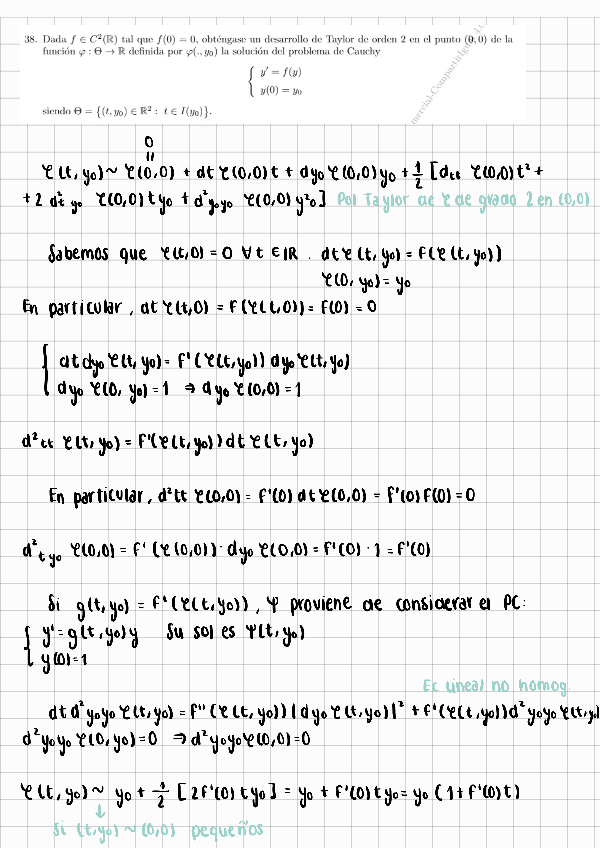 38. Dada f ∈ C²(ℝ) tal que f(0) = 0, obténgase un desarrollo de Taylor de orden 2 en el punto (0, 0) de la
función φ : Θ → ℝ definida por φ(., y₀) la solución del problema de Cauchy
{ y' = f(y)
y(0) = y₀
siendo Θ = {(t, y₀) ∈ ℝ² : t ∈ I(y₀)}.
0
φ(t, y₀) ~ φ(0,0) + dt φ(0,0) t + dy₀ φ(0,0) y₀ + 1/2 [dtt φ(0,0) t² +
+ 2 d²t y₀ φ(0,0) t y₀ + d²y₀y₀ φ(0,0) y²₀] Pol Taylor de φ de grado 2 en (0,0)
Sabemos que φ(t,0) = 0 ∀t ∈ IR . dt φ(t, y₀) = f(φ(t, y₀))
φ(0, y₀) = y₀
En particular, dt φ(t,0) = f(φ(t,0)) = f(0) = 0
{ dt dy₀ φ(t, y₀) = f'(φ(t,y₀)) dy₀ φ(t, y₀)
dy₀ φ(0, y₀) = 1 ⇒ dy₀ φ(0,0) = 1
d²tt φ(t, y₀) = f'(φ(t, y₀)) dt φ(t, y₀)
En particular, d²tt φ(0,0) = f'(0) dt φ(0,0) = f'(0) f(0) = 0
d²t y₀ φ(0,0) = f'(φ(0,0)) · dy₀ φ(0,0) = f'(0) · 1 = f'(0)
Si g(t, y₀) = f'(φ(t, y₀)), Ψ proviene de considerar el PC:
{ y' = g(t, y₀) y Su sol es Ψ(t, y₀)
y(0) = 1
Ec lineal no homog.
dt d²y₀y₀ φ(t, y₀) = f''(φ(t, y₀)) |dy₀ φ(t, y₀)|² + f'(φ(t,y₀)) d²y₀y₀ φ(t, y₀)
d²y₀y₀ φ(0, y₀) = 0 ⇒ d²y₀y₀ φ(0,0) = 0
φ(t, y₀) ~ y₀ + 1/2 [2f'(0) t y₀] = y₀ + f'(0) t y₀ = y₀ (1 + f'(0) t)
↓
Si (t, y₀) ~ (0,0) pequeños